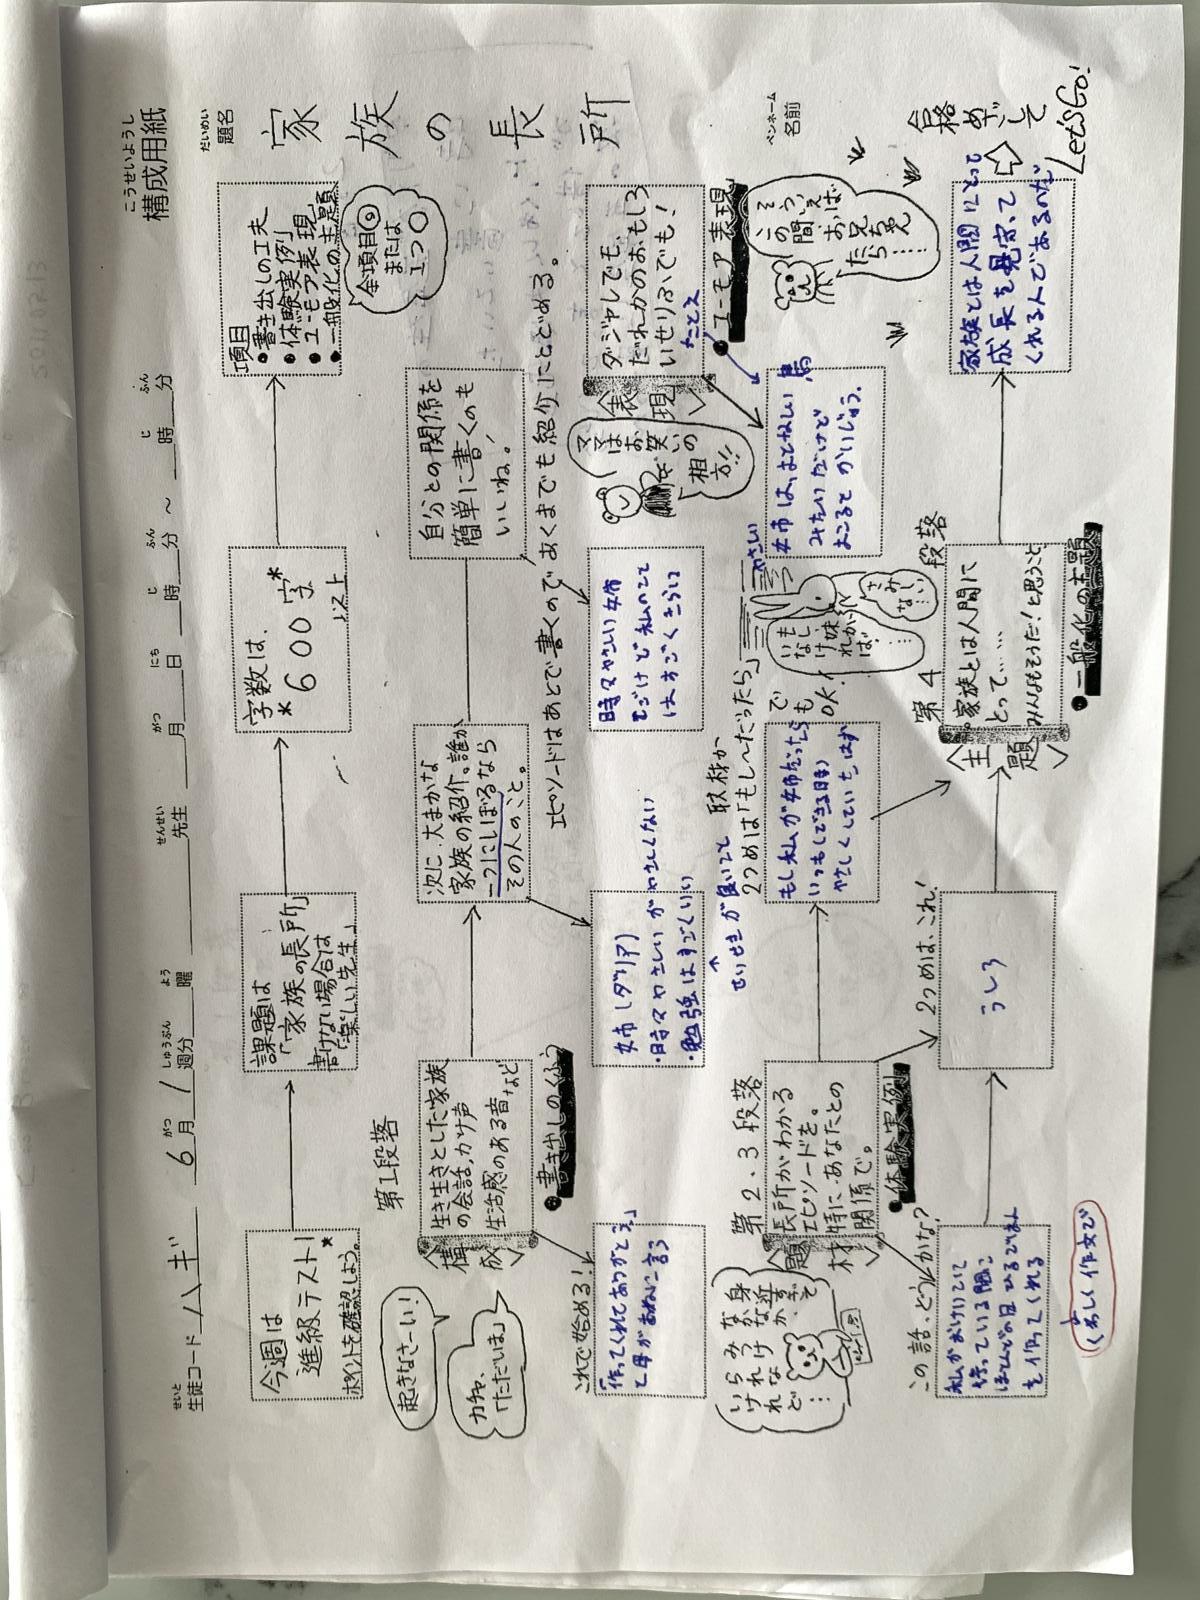 こうせいようし
構成用紙
せいと
生徒コード ハギ
がつ しゅうぶん よう
6月 1 週分 曜
せんせい
先生
がつ にち じ ふん じ ふん
月 日 時 分 ~ 時 分
だいめい
題名
家族の長所
ペンネーム
名前
今週は
進級テスト!
ポイントを確認しよう。
課題は
「家族の長所」
書けない場合は
「楽しい先生」
字数は、
*600字*
以上
項目
●書き出しの工夫
●体験実例
●ユーモア表現
●一般化の主題
全項目◎
または
1つ〇
起きなさーい!
カチャ、
「ただいま」
第1段落
〈構成〉
生き生きとした家族
の会話、かけ声
生活感のある音など
●書き出しのくふう
次に、大まかな
家族の紹介、誰か
一つにしぼるなら
その人のこと。
自分との関係を
簡単に書くのも
いいね!
エピソードはあとで書くので、あくまでも紹介にとどめる。
これで始める!
「作ってくれてありがとう」
と母があねに言う
姉(ダリア)
・時々やさしいがやさしくない
・勉強はすごくいい
↑
せいせきが良いこと
時々やさしい姉
だけど私のこと
はすごくきらい
ママは
お笑いの
相方!!
〈表現〉
ダジャレでも、
だれかのおもしろ
いせりふでも!
たとえ
●ユーモア表現
姉は、おとなしい馬
みたいだけど
おこるとかいじゅう。
やさしい
そういえば
この間、お兄ちゃん
たら……
いろいろ
第2、3段落
〈題材〉
長所がわかる
エピソードを。
特に、あなたとの
関係で。
●体験実例
取材か
2つめは「もし〜だったら」
でも
OK!
もし私が姉だったら
いつもしできる時
やさしくしていたはず
もし、妹が
いなければ
……
さみ
しい…
この話、どうかな?
私がおけいこいて
待っている間に
ほとんどの日ひるごはん
を作ってくれる
くわしく作文で
2つめは、これ!
うしろ
第4段落
〈主題〉
家族とは人間に
とって……
みんなもそうだ!と思うこと
●一般化の主題
家族とは人間にとって
成長を見守って
くれる人であるのだ
合格
めざして
Let's Go!